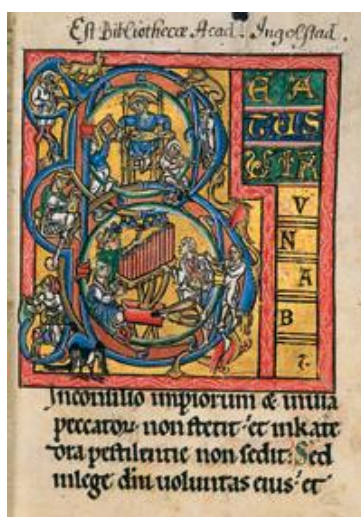 Est Bibliothecæ Acad. Ingolstad.
B
EA
TUS
UIR
V
N
A
B
inconsilio impiorum & inuia
peccatoꝝ non stetit et inkate
dra pestilentie non sedit. Sed
inlege dni uoluntas eius et